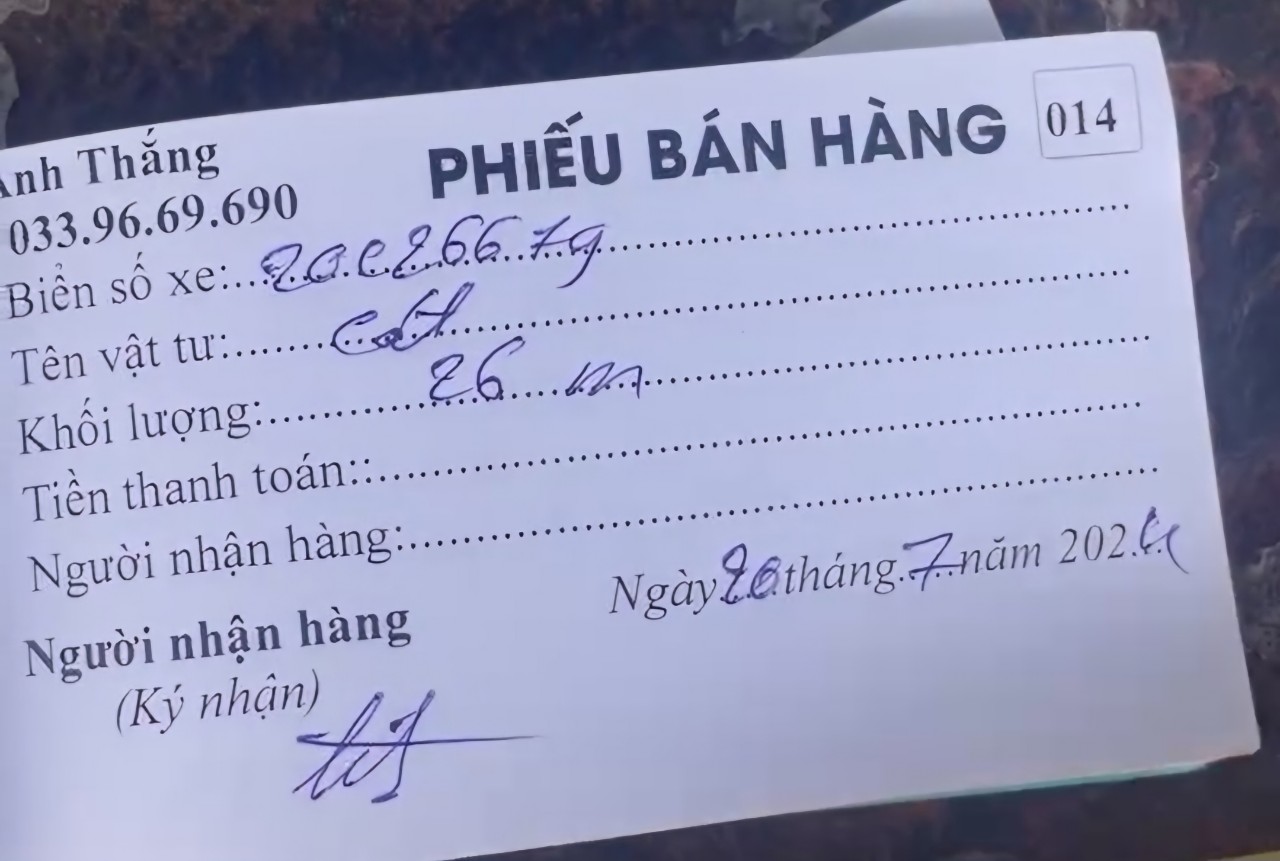 Anh Thắng
033.96.69.690
PHIẾU BÁN HÀNG
014
Biển số xe:...20C26679
Tên vật tư:.......cát
Khối lượng:............26 m
Tiền thanh toán::
Người nhận hàng:
Ngày 20 tháng 7 năm 2024
Người nhận hàng
(Ký nhận)